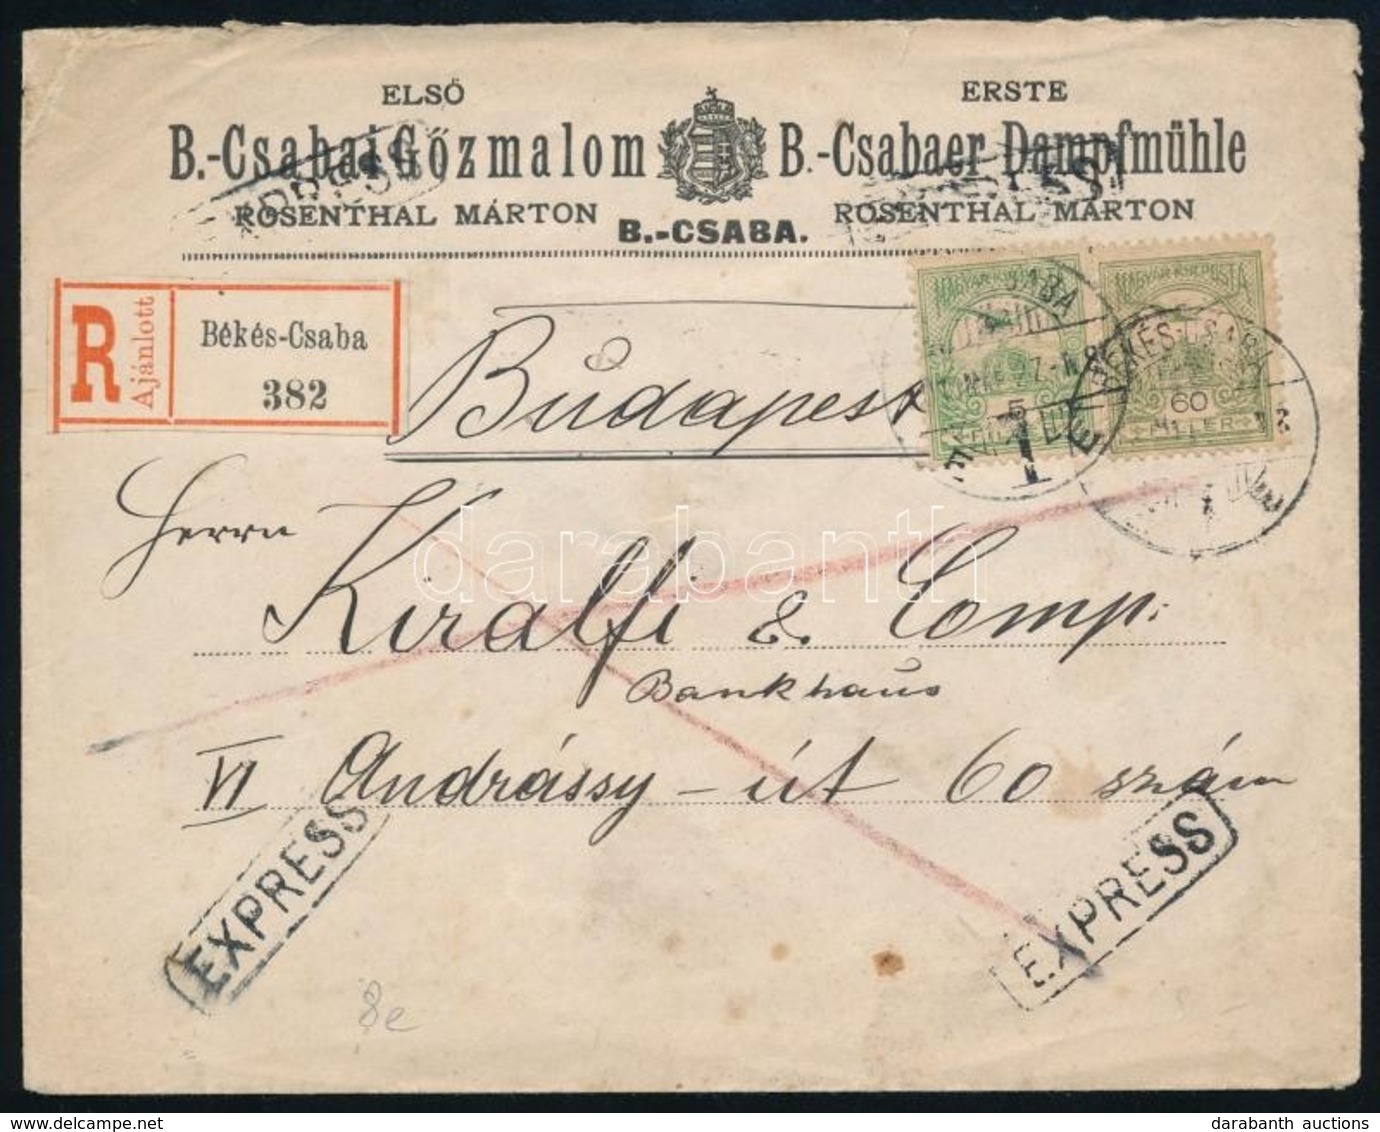 ELSŐ
B.-Csabai Gőzmalom
ROSENTHAL MÁRTON
B.-CSABA.
ERSTE
B.-Csabaer Dampfmühle
ROSENTHAL MÁRTON
R
Ajánlott
Békés-Csaba
382
MAGYAR KIR. POSTA
5
MAGYAR KIR. POSTA
60
FILLÉR
BÉKÉS-CSABA
Budapest
Herrn
Kiralfi & Comp.
Bankhaus
VI Andrássy-út 60 szám
EXPRESS
EXPRESS
8e
darabanth
darabanth auctions